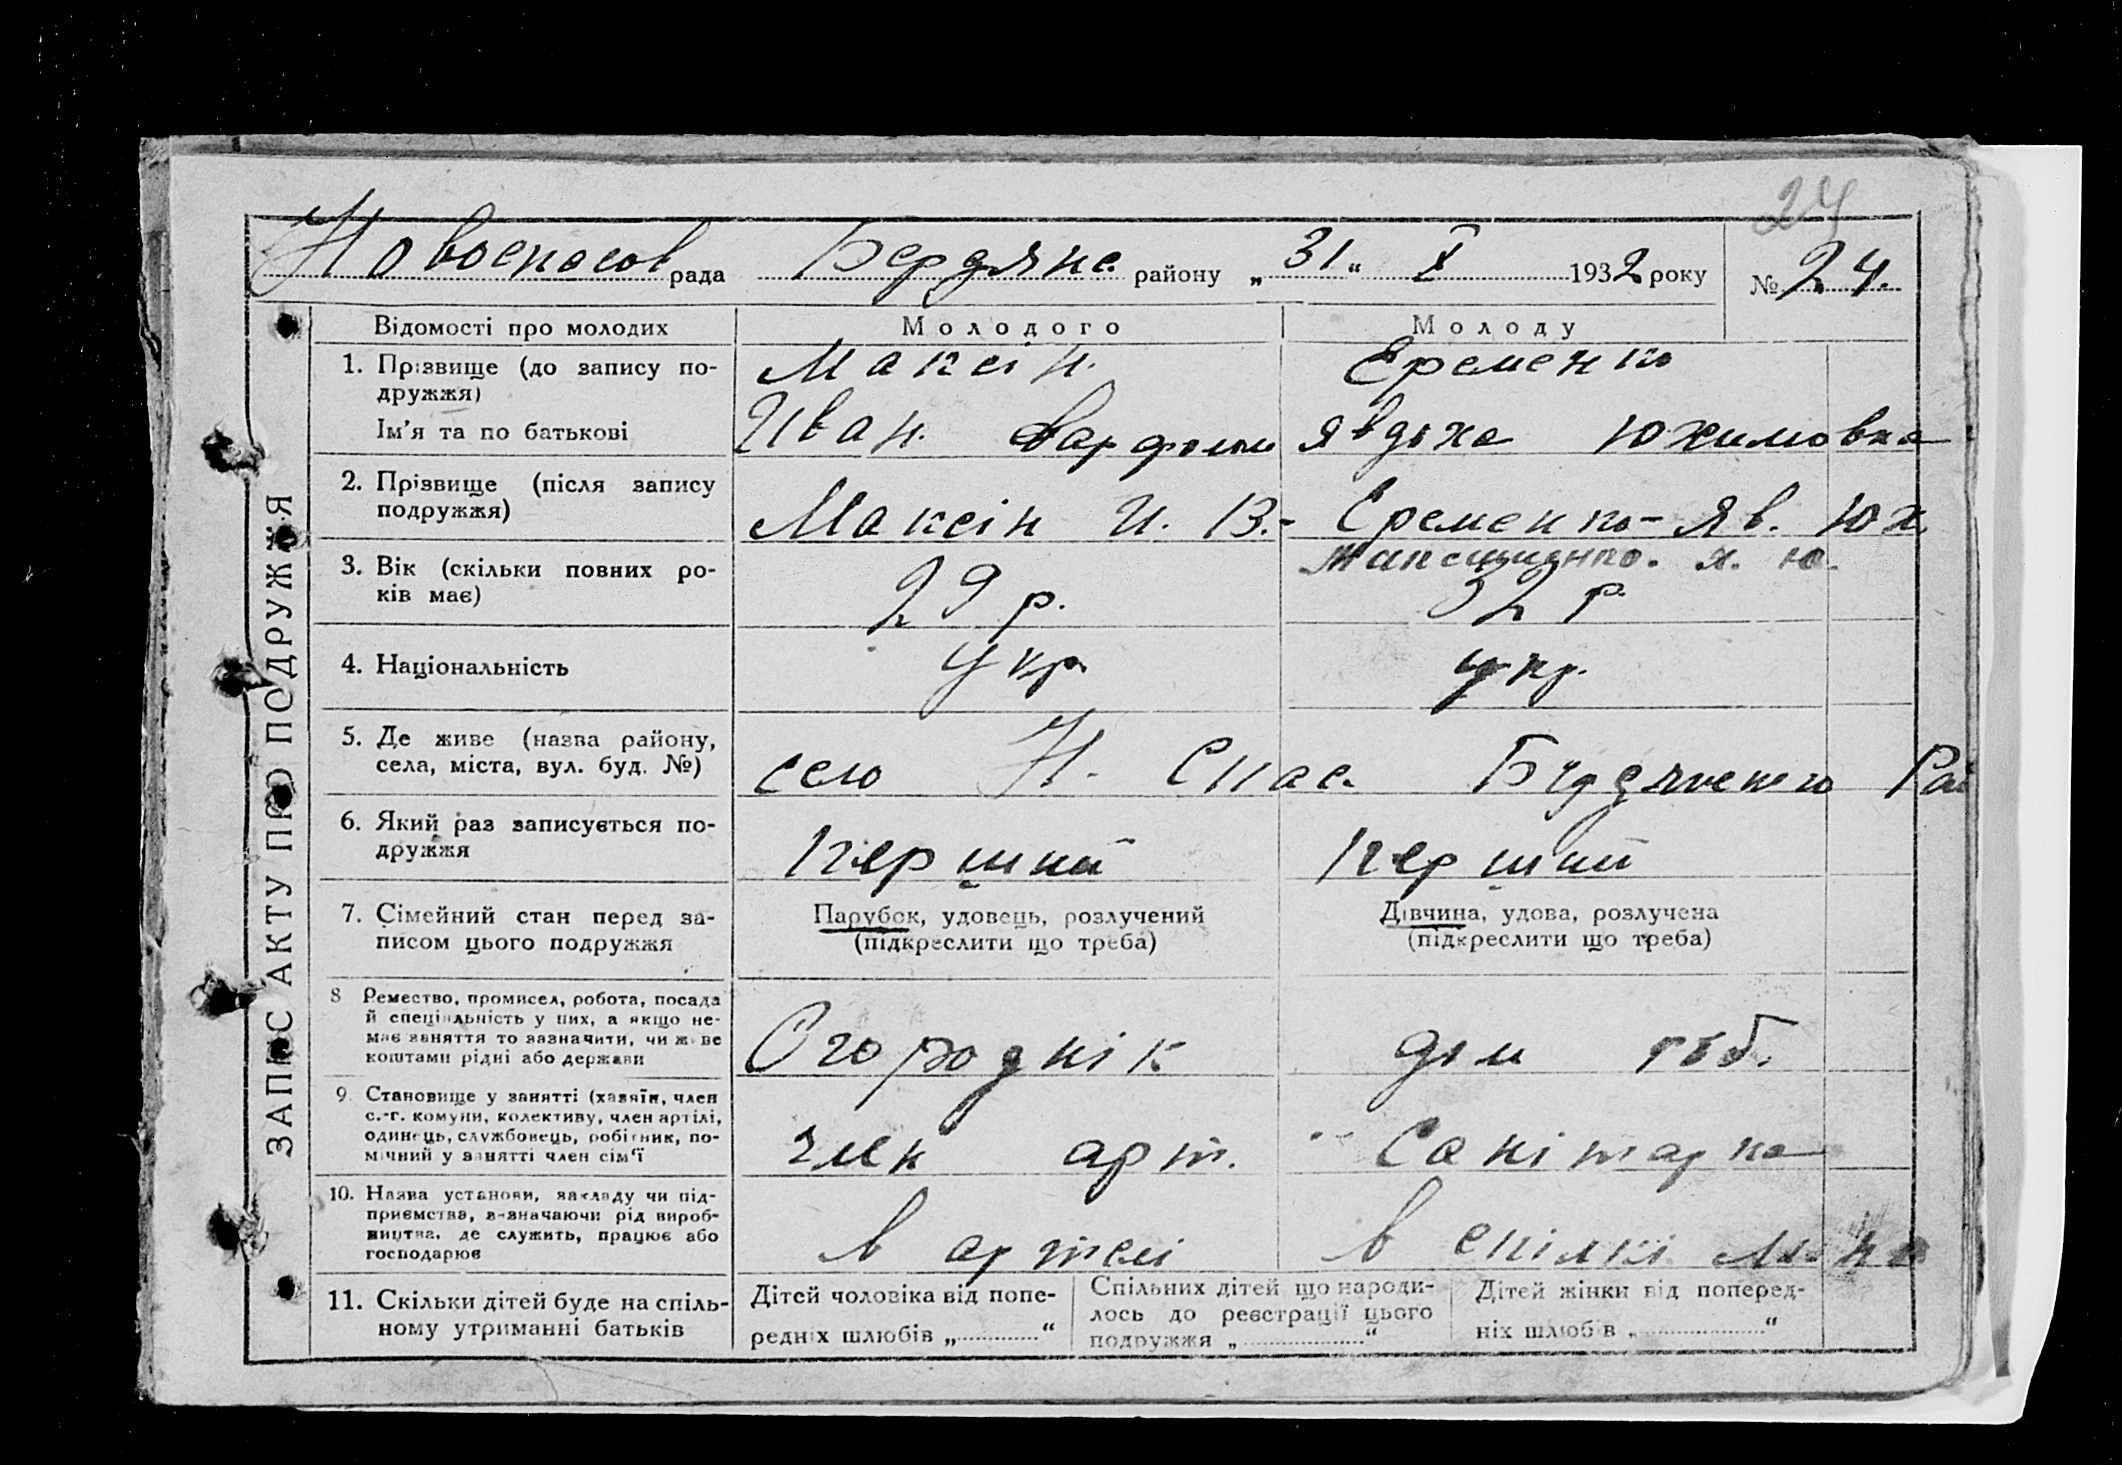 24
Новоспасов рада Бердянс. району „31“ X 1932 року № 24.
ЗАПИС АКТУ ПРО ПОДРУЖЖЯ
Відомості про молодих Молодого Молоду
1. Прізвище (до запису по-
дружжя) Максін. Єременко
Ім'я та по батькові Иван. Варфолом Явдоха Юхимовна
2. Прізвище (після запису
подружжя) Максін И. В. - Єременко - Яв. Юх
Максименко. Я. Ю.
3. Вік (скільки повних ро-
ків має) 29 р. 32 р.
4. Національність укр укр.
5. Де живе (назва району,
села, міста, вул. буд. №) село Н. Спас. Бердянского Рай
6. Який раз записується по-
дружжя Перший Перший
7. Сімейний стан перед за-
писом цього подружжя
Парубок, удовець, розлучений
(підкреслити що треба)
Дівчина, удова, розлучена
(підкреслити що треба)
8 Ремество, промисел, робота, посада
й спеціяльність у них, а якщо не-
має заняття то зазначити, чи живе
коштами рідні або держави
Огороднік дом роб.
9. Становище у занятті (хазяїн, член
с.-г. комуни, колективу, член артілі,
одинець, службовець, робітник, по-
мічний у занятті член сім'ї
член арт. Санітарка
10. Назва установи, закладу чи під-
приємства, зазначаючи рід вироб-
ництва, де служить, працює або
господарює
в артелі в спілкі
11. Скільки дітей буде на спіль-
ному утриманні батьків
Дітей чоловіка від попе-
редніх шлюбів „ “
Спільних дітей що народи-
лось до реєстрації цього
подружжя „ “
Дітей жінки від поперед-
ніх шлюбів „ “